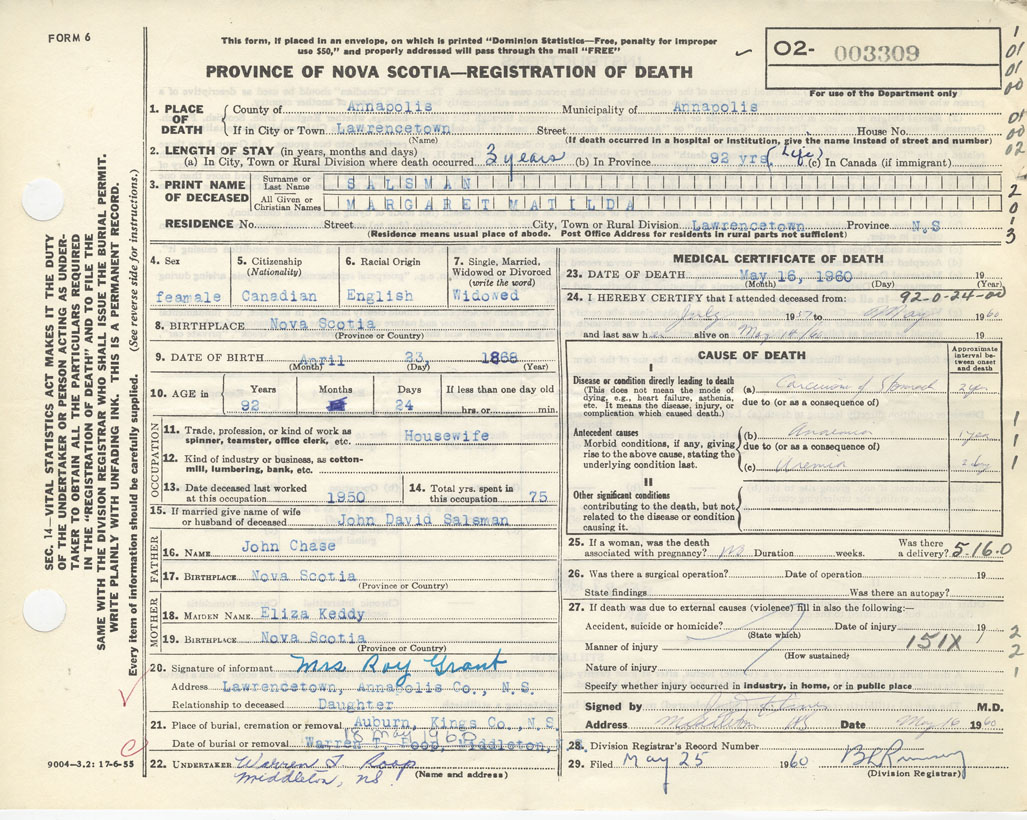 FORM 6
This form, if placed in an envelope, on which is printed "Dominion Statistics—Free, penalty for improper
use $50," and properly addressed will pass through the mail "FREE"
PROVINCE OF NOVA SCOTIA—REGISTRATION OF DEATH
02- 003309
For use of the Department only
1. PLACE OF DEATH
County of Annapolis Municipality of Annapolis
If in City or Town Lawrencetown Street House No.
(Name) (If death occurred in a hospital or institution, give the name instead of street and number)
2. LENGTH OF STAY (in years, months and days)
(a) In City, Town or Rural Division where death occurred 3 years (b) In Province 92 yrs (Life) (c) In Canada (if immigrant)
3. PRINT NAME OF DECEASED
Surname or Last Name SALSMAN
All Given or Christian Names MARGARET MATILDA
RESIDENCE No. Street City, Town or Rural Division Lawrencetown Province N.S
(Residence means usual place of abode. Post Office Address for residents in rural parts not sufficient)
4. Sex
feamale
5. Citizenship
(Nationality)
Canadian
6. Racial Origin
English
7. Single, Married,
Widowed or Divorced
(write the word)
Widowed
8. BIRTHPLACE Nova Scotia
(Province or Country)
9. DATE OF BIRTH April 23 1868
(Month) (Day) (Year)
10. AGE in
Years Months Days If less than one day old
92 24 hrs. or min.
OCCUPATION
11. Trade, profession, or kind of work as
spinner, teamster, office clerk, etc. Housewife
12. Kind of industry or business, as cotton-
mill, lumbering, bank, etc.
13. Date deceased last worked
at this occupation 1950
14. Total yrs. spent in
this occupation 75
15. If married give name of wife
or husband of deceased John David Salsman
FATHER
16. NAME John Chase
17. BIRTHPLACE Nova Scotia
(Province or Country)
MOTHER
18. MAIDEN NAME Eliza Keddy
19. BIRTHPLACE Nova Scotia
(Province or Country)
20. Signature of informant Mrs Roy Grant
Address Lawrencetown, Annapolis Co., N.S.
Relationship to deceased Daughter
21. Place of burial, cremation or removal Auburn, Kings Co., N.S
18 May 1960
Date of burial or removal Warren T. Roop, Middleton, N.S
22. UNDERTAKER Warren T. Roop
Middleton, NS
(Name and address)
9004—3.2: 17-6-55
MEDICAL CERTIFICATE OF DEATH
23. DATE OF DEATH May 16, 1960 19
(Month) (Day) (Year)
92-0-24-00
24. I HEREBY CERTIFY that I attended deceased from:
July 1957 to May 1960
and last saw her alive on 19
CAUSE OF DEATH
Approximate interval between onset and death
I
Disease or condition directly leading to death
(This does not mean the mode of
dying, e.g., heart failure, asthenia,
etc. It means the disease, injury, or
complication which caused death.)
(a) Carcinoma of Stomach
due to (or as a consequence of)
Antecedent causes
Morbid conditions, if any, giving
rise to the above cause, stating the
underlying condition last.
(b) Anaemia
due to (or as a consequence of)
(c) Uremia
II
Other significant conditions
contributing to the death, but not
related to the disease or condition
causing it.
25. If a woman, was the death
associated with pregnancy? no Duration weeks.
Was there
a delivery? 5-16-0
26. Was there a surgical operation? Date of operation 19
State findings Was there an autopsy?
27. If death was due to external causes (violence) fill in also the following:—
Accident, suicide or homicide? Date of injury 19
(State which)
Manner of injury 151X
(How sustained)
Nature of injury
Specify whether injury occurred in industry, in home, or in public place
Signed by M.D.
Address Middleton NS Date May 16 1960
28. Division Registrar's Record Number
29. Filed May 25 1960
(Division Registrar)
SEC. 14—VITAL STATISTICS ACT MAKES IT THE DUTY
OF THE UNDERTAKER OR PERSON ACTING AS UNDER-
TAKER TO OBTAIN ALL THE PARTICULARS REQUIRED
IN THE "REGISTRATION OF DEATH" AND TO FILE THE
SAME WITH THE DIVISION REGISTRAR WHO SHALL ISSUE THE BURIAL PERMIT.
WRITE PLAINLY WITH UNFADING INK. THIS IS A PERMANENT RECORD.
Every item of information should be carefully supplied. (See reverse side for instructions.)